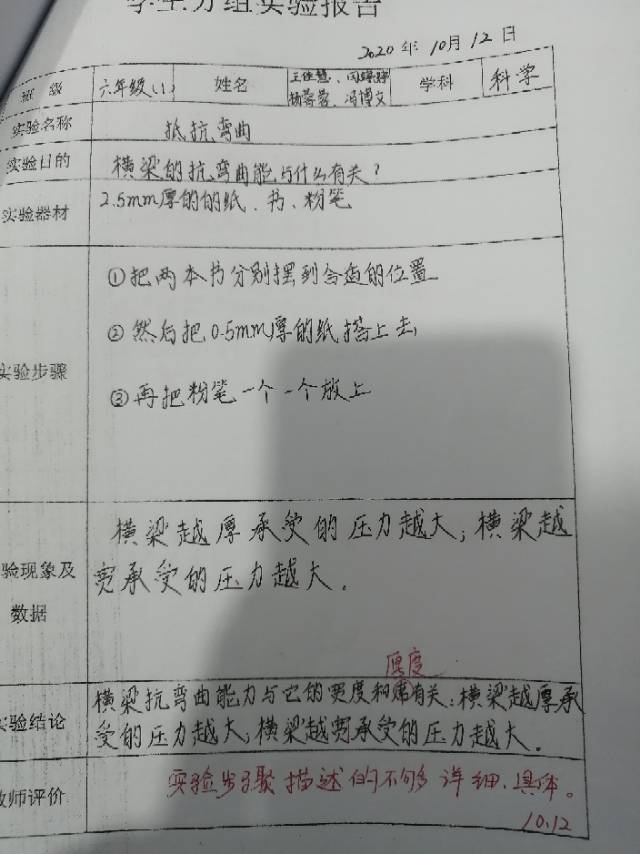 学生分组实验报告
2020年10月12日
班级 六年级(1) 姓名 学科 科学
杨蓉蓉、冯博文
实验名称 抵抗弯曲
实验目的 横梁的抗弯曲能与什么有关?
实验器材 2.5mm厚的的纸、书、粉笔
①把两本书分别摆到合适的位置
②然后把0.5mm厚的纸搭上去
实验步骤
③再把粉笔一个一个放上
横梁越厚承受的压力越大;横梁越
验现象及 宽承受的压力越大.
数据
厚度
横梁抗弯曲能力与它的宽度和有关:横梁越厚承
实验结论 受的压力越大,横梁越宽承受的压力越大.
教师评价 实验步骤描述的不够详细、具体。
10.12